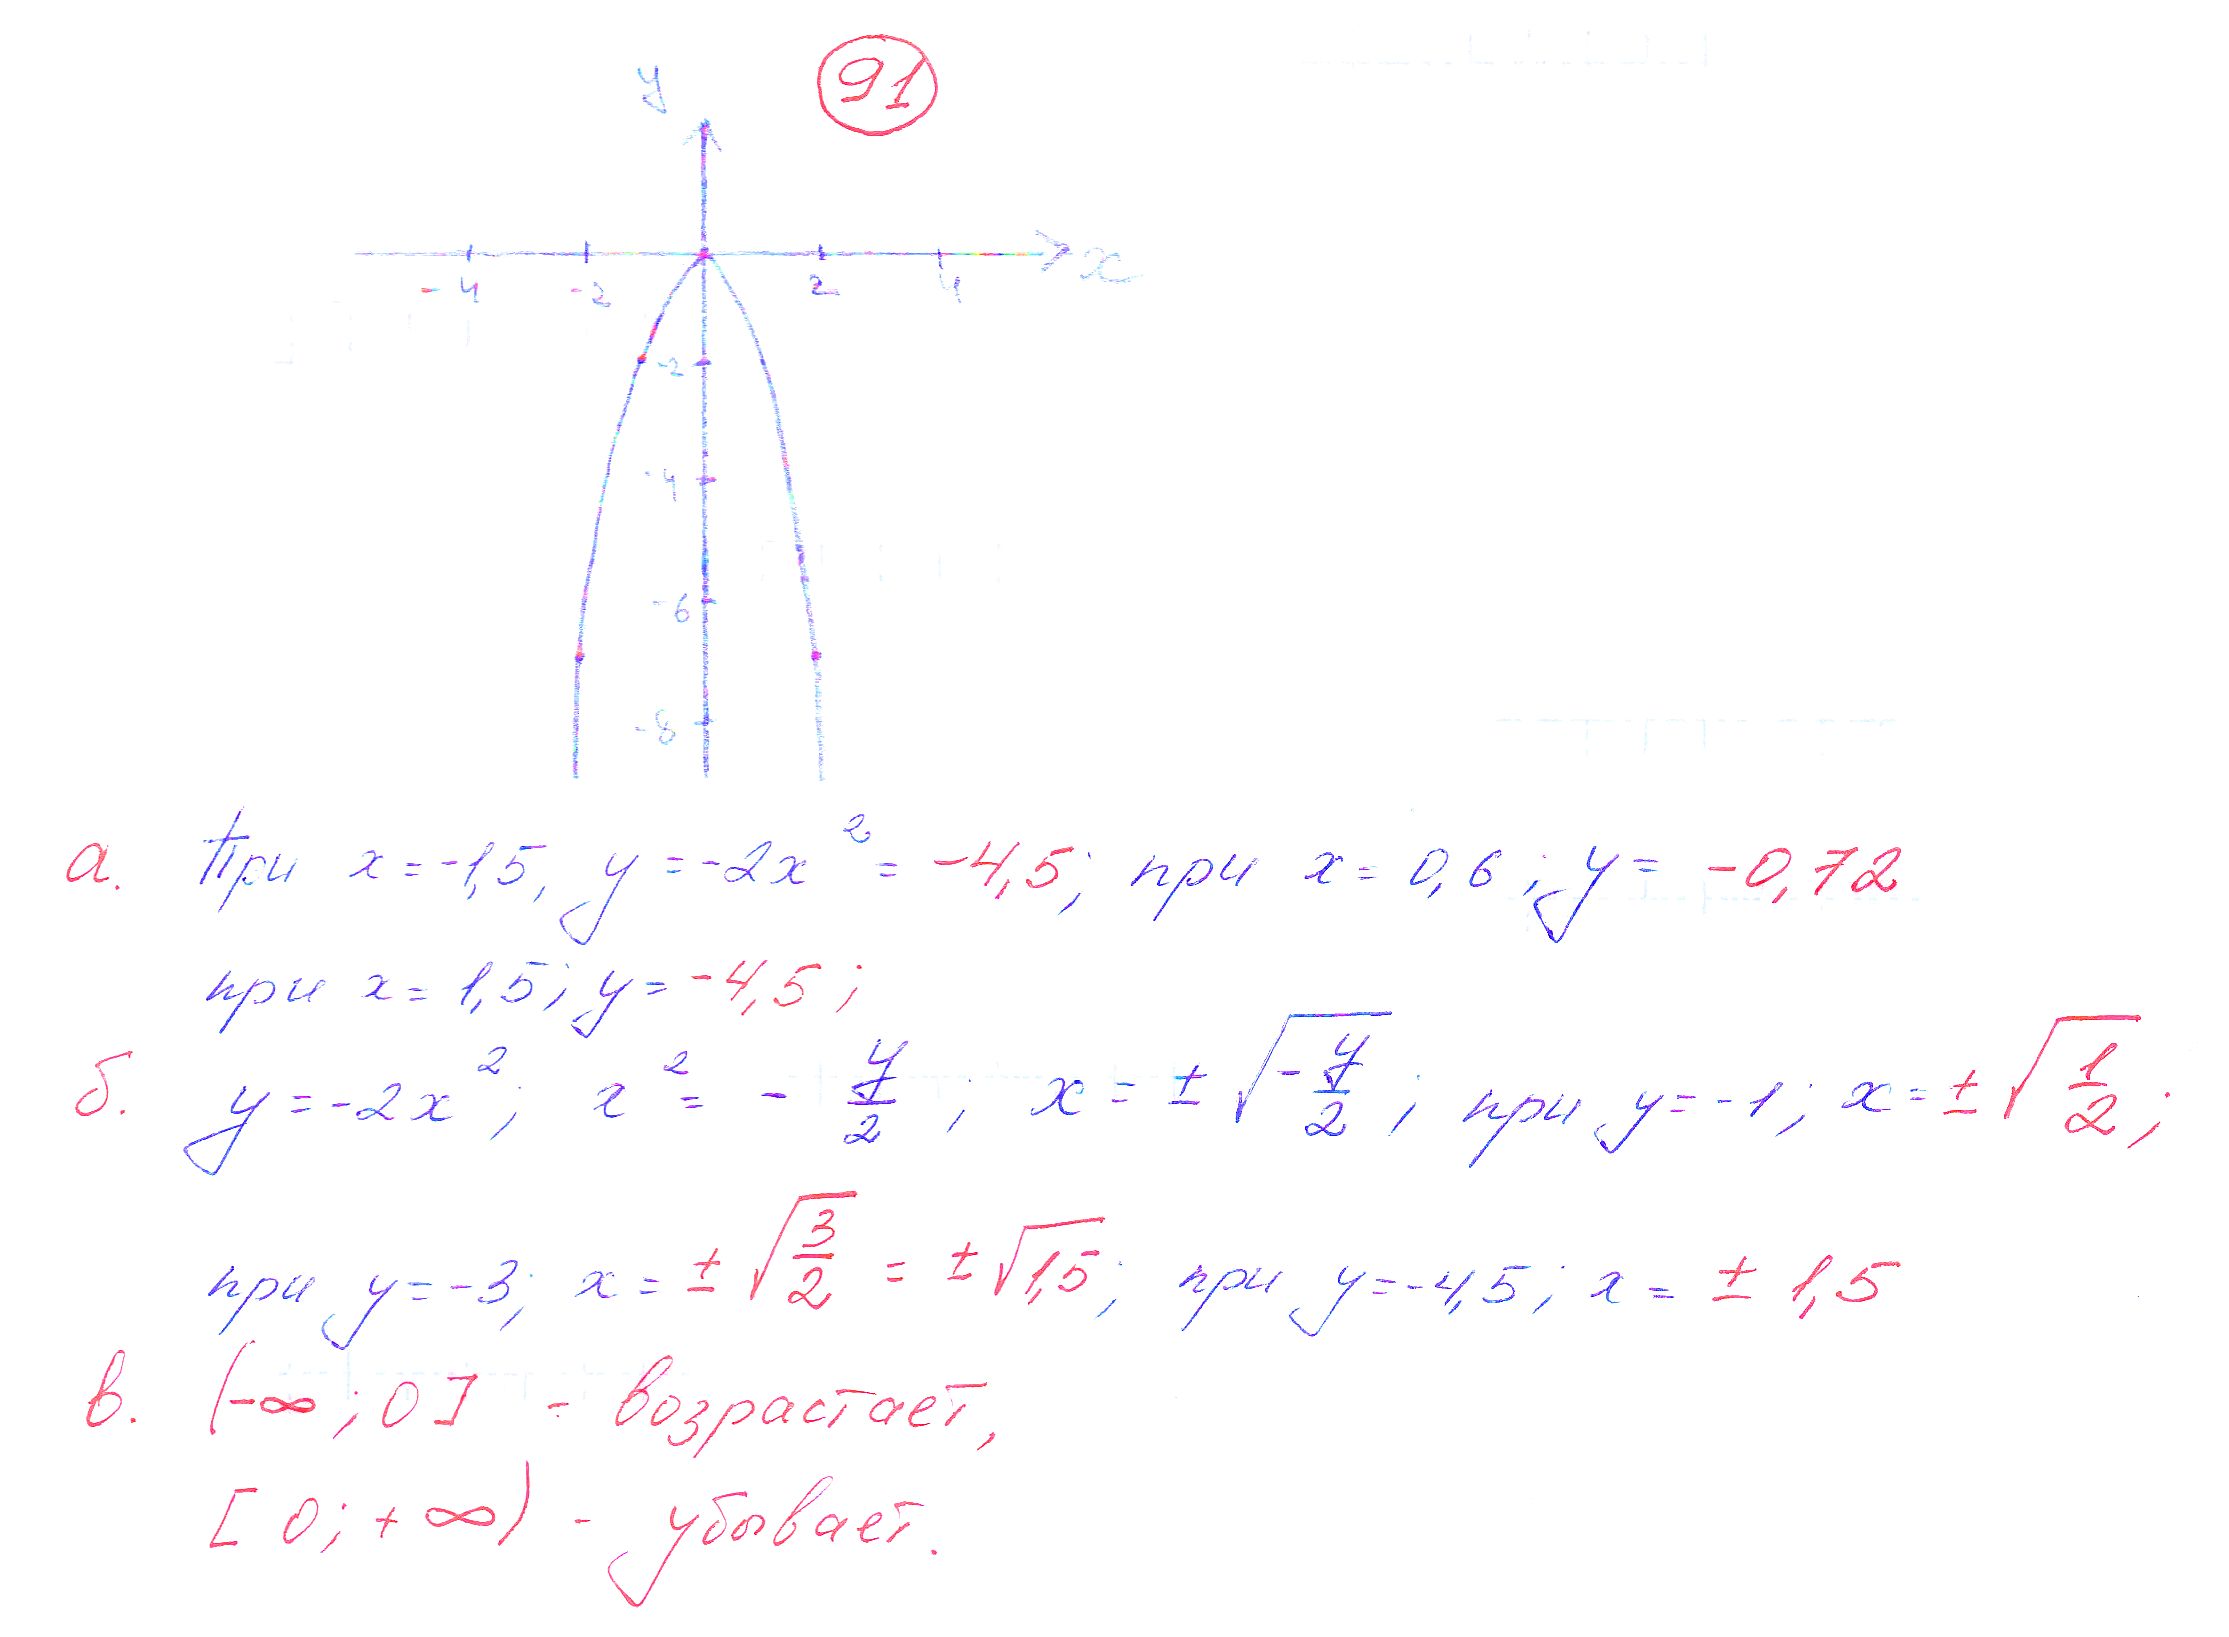 91
y
x
-4 -2 2 4
-2
-4
-6
-8
а. При x = -1,5, y = -2x² = -4,5; при x = 0,6; y = -0,72
при x = 1,5; y = -4,5;
б. y = -2x²; x² = - y/2; x = ± √(-y/2); при y = -1; x = ± √(1/2);
при y = -3; x = ± √(3/2) = ± √1,5; при y = -4,5; x = ± 1,5
в. (-∞; 0] - возрастает,
[0; +∞) - убывает.